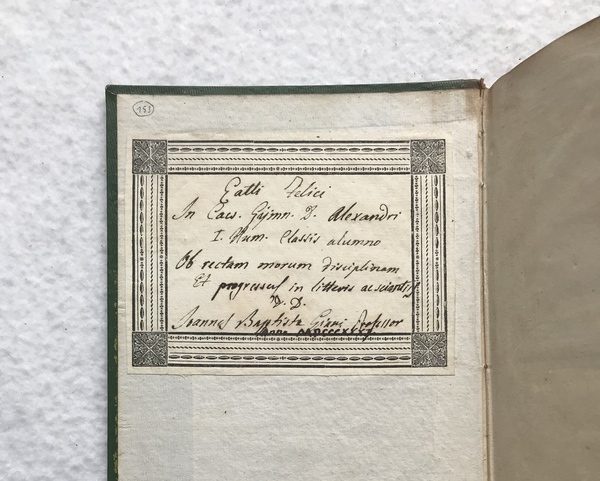 151
Gatti Felici
In Caes. Gymn. D. Alexandri
I. Hum. Classis alumno
Ob rectam morum disciplinam
Et progressus in litteris ac scientiis
D. D.
Joannes Baptista Professor
Anno